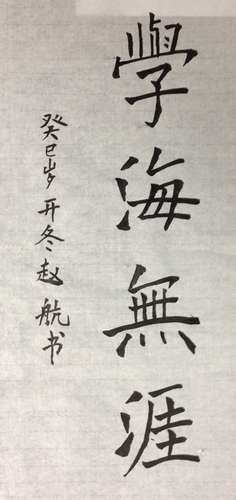 學海無涯
癸巳岁开冬赵航书